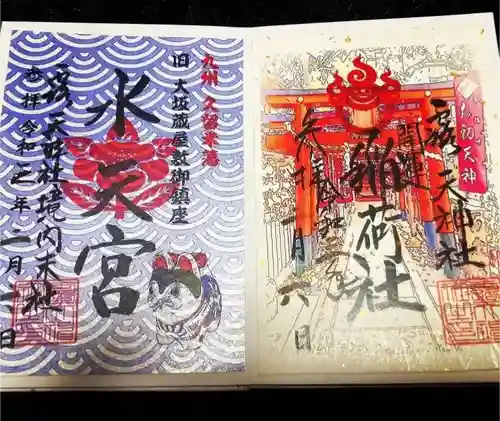 九州 久留米藩
旧 大坂蔵屋敷御鎮座
水天宮
露天神社境内末社
参拝 令和二年二月一日
お初天神
露天神社
開運
稲荷社
参拝 令和二年
二月六日